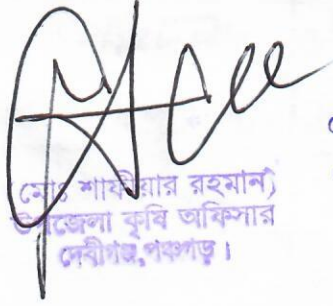 (মোঃ শাফীয়ার রহমান)
উপজেলা কৃষি অফিসার
দেবীগঞ্জ,পঞ্চগড়।